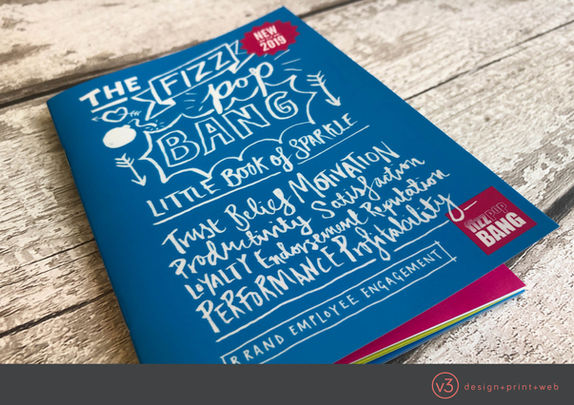 THE FIZZ
pop
BANG
NEW
2019
LITTLE BOOK of SPARKLE
Trust Belief MOTIVATION
Productivity Satisfaction
LOYALTY Endorsement Reputation
PERFORMANCE Profitability
BRAND EMPLOYEE ENGAGEMENT
FIZZ POP
BANG
v3 design+print+web